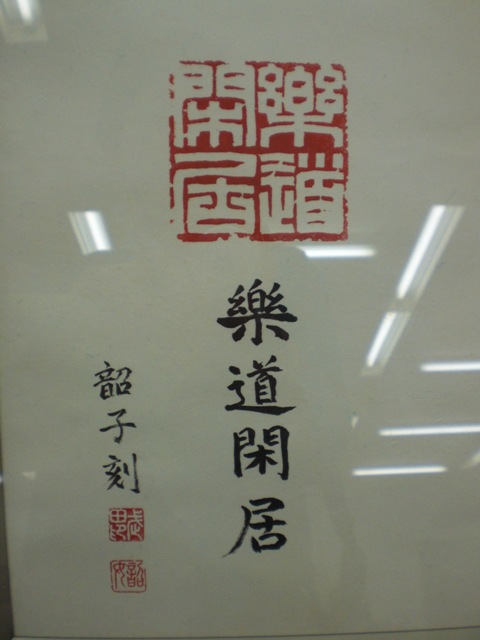 樂道閑居
樂道閑居
韶子刻